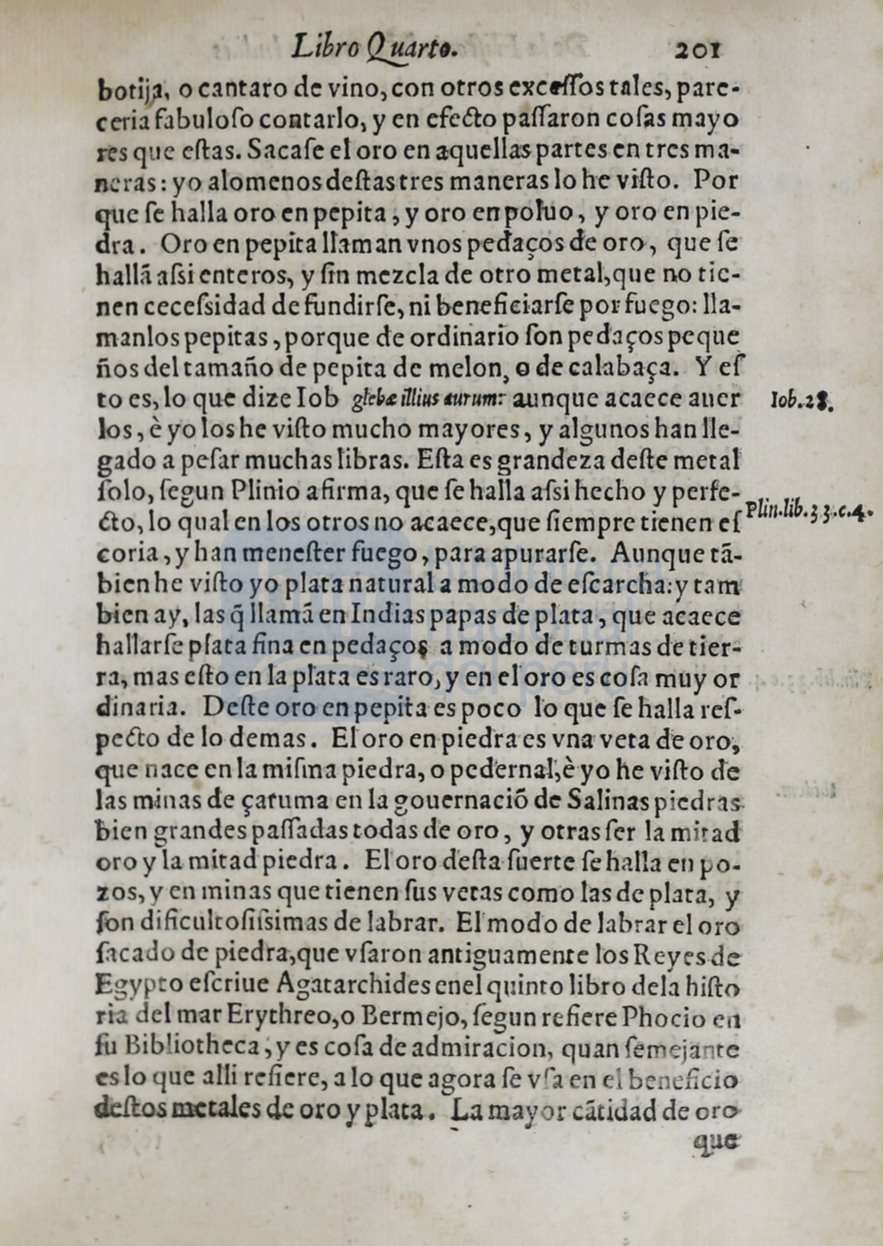 Libro Quarto. 201
botija, o cantaro de vino, con otros exceſſos tales, pare-
ceria fabuloſo contarlo, y en efecto paſſaron coſas mayo
res que eſtas. Sacaſe el oro en aquellas partes en tres ma-
neras: yo alomenos deſtas tres maneras lo he viſto. Por
que ſe halla oro en pepita, y oro en poluo, y oro en pie-
dra. Oro en pepita llaman vnos pedaços de oro, que ſe
hallã aſsi enteros, y ſin mezcla de otro metal, que no tie-
nen ceceſsidad de fundirſe, ni beneficiarſe por fuego: lla-
manlos pepitas, porque de ordinario ſon pedaços peque
ños del tamaño de pepita de melon, o de calabaça. Y eſ
to es, lo que dize Iob glebæ illius aurum: aunque acaece auer
Iob. 28.
los, è yo los he viſto mucho mayores, y algunos han lle-
gado a peſar muchas libras. Eſta es grandeza deſte metal
ſolo, ſegun Plinio afirma, que ſe halla aſsi hecho y perfe-
Plin. lib. 33. c. 4.
cto, lo qual en los otros no acaece, que ſiempre tienen eſ
coria, y han meneſter fuego, para apurarſe. Aunque tã-
bien he viſto yo plata natural a modo de eſcarcha: y tam
bien ay, las q̃ llamã en Indias papas de plata, que acaece
hallarſe plata fina en pedaços a modo de turmas de tier-
ra, mas eſto en la plata es raro, y en el oro es coſa muy or
dinaria. Deſte oro en pepita es poco lo que ſe halla reſ-
pecto de lo demas. El oro en piedra es vna veta de oro,
que nace en la miſma piedra, o pedernal, è yo he viſto de
las minas de çaruma en la gouernaciõ de Salinas piedras
bien grandes paſſadas todas de oro, y otras ſer la mitad
oro y la mitad piedra. El oro deſta ſuerte ſe halla en po-
zos, y en minas que tienen ſus vetas como las de plata, y
ſon dificultoſiſsimas de labrar. El modo de labrar el oro
ſacado de piedra, que vſaron antiguamente los Reyes de
Egypto eſcriue Agatarchides enel quinto libro dela hiſto
ria del mar Erythreo, o Bermejo, ſegun refiere Phocio en
ſu Bibliotheca, y es coſa de admiracion, quan ſemejante
es lo que alli refiere, a lo que agora ſe vſa en el beneficio
deſtos metales de oro y plata. La mayor cãtidad de oro
que